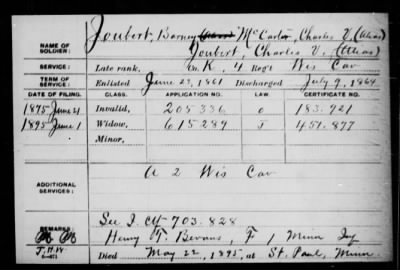 Joubert, Barney McCarter, Charles V. (Alias)
NAME OF SOLDIER: Joubert, Charles V. (Alias)
SERVICE: Late rank, Co. K, 4 Reg't Wis Cav
TERM OF SERVICE: Enlisted June 29, 1861 Discharged July 9, 1864
DATE OF FILING. CLASS. APPLICATION NO. LAW. CERTIFICATE NO.
1875 June 21 Invalid, 205 336 0 183.921
1895 June 1 Widow, 615289 451.877
Minor,
ADDITIONAL SERVICES: A 2 Wis Cav
See I. Ctf 703.828
REMARKS: Henry T. Bevans, F 1 Minn Inf
J.H.W. Died May 22, 1895, at St. Paul, Minn.